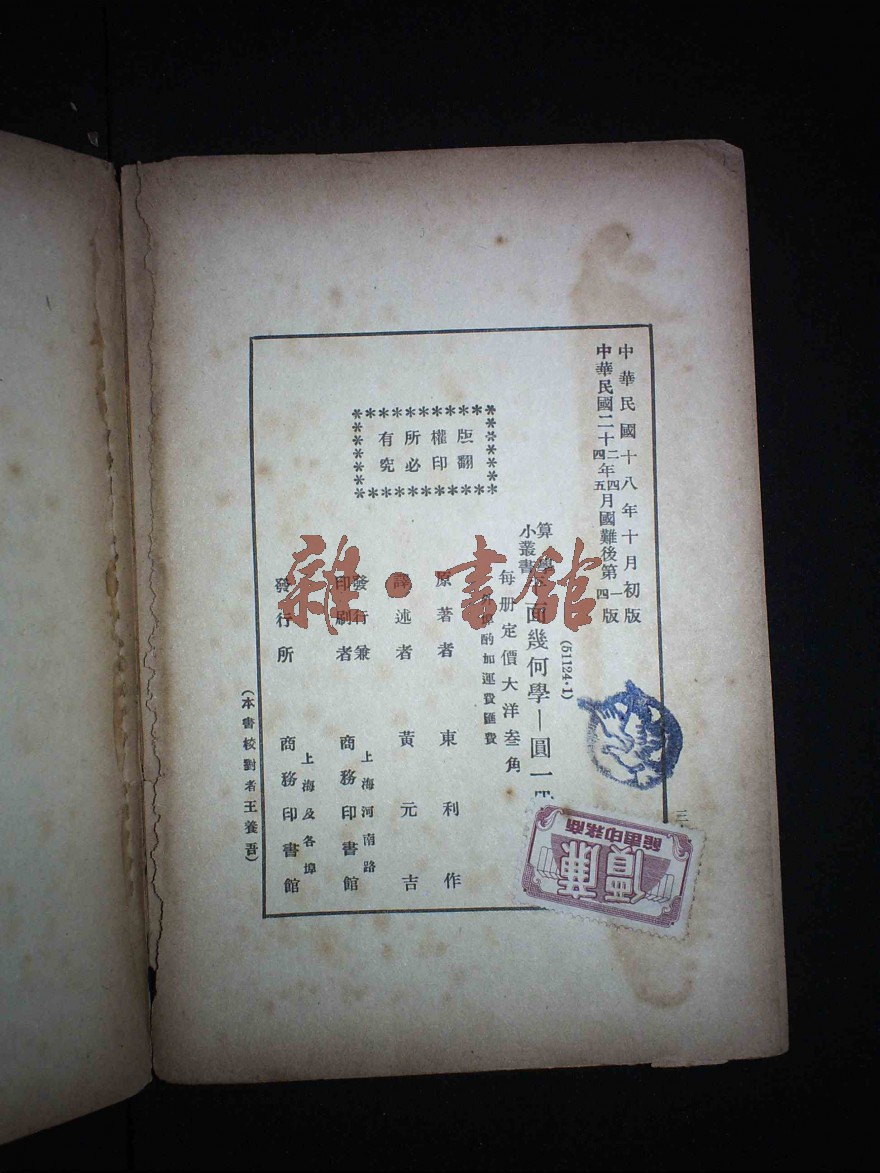 中華民國十八年十月初版
中華民國二十二年四月國難後第一版
中華民國二十四年五月國難後第四版
(51124·1)
算學
小叢書
平面幾何學—圓一冊
每册定價大洋叁角
外埠酌加運費匯費
原著者 東利作
譯述者 黃元吉
發行兼
印刷者
上海河南路
商務印書館
發行所
上海及各埠
商務印書館
(本書校對者王養吾)
版權所有
翻印必究
三
商務印書館
廉價
雜·書館